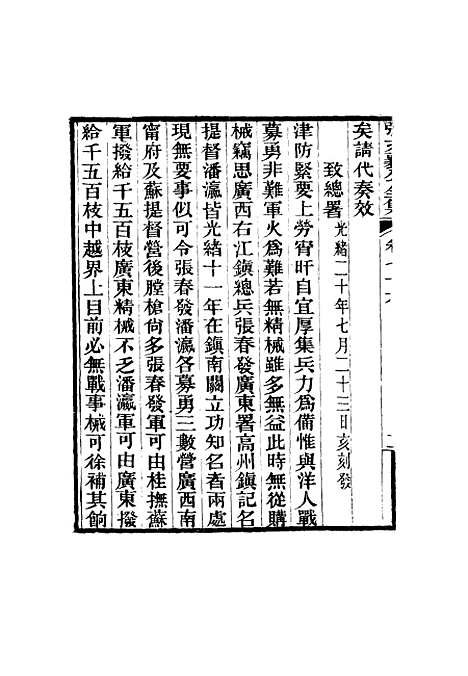 矣請代奏效
致總署光緒二十年七月二十三日亥刻發
津防緊要上勞宵旰自宜厚集兵力爲備惟與洋人戰
募勇非難軍火爲難若無精械雖多無益此時無從購
械竊思廣西右江鎭總兵張春發廣東署高州鎭記名
提督潘瀛皆光緒十一年在鎭南關立功知名者兩處
現無要事似可令張春發潘瀛各募勇三數營廣西南
甯府及蘇提督營後膛槍尙多張春發軍可由桂撫蘇
軍撥給千五百枝廣東精械不乏潘瀛軍可由廣東撥
給千五百枝中越界上目前必無戰事械可徐補其餉